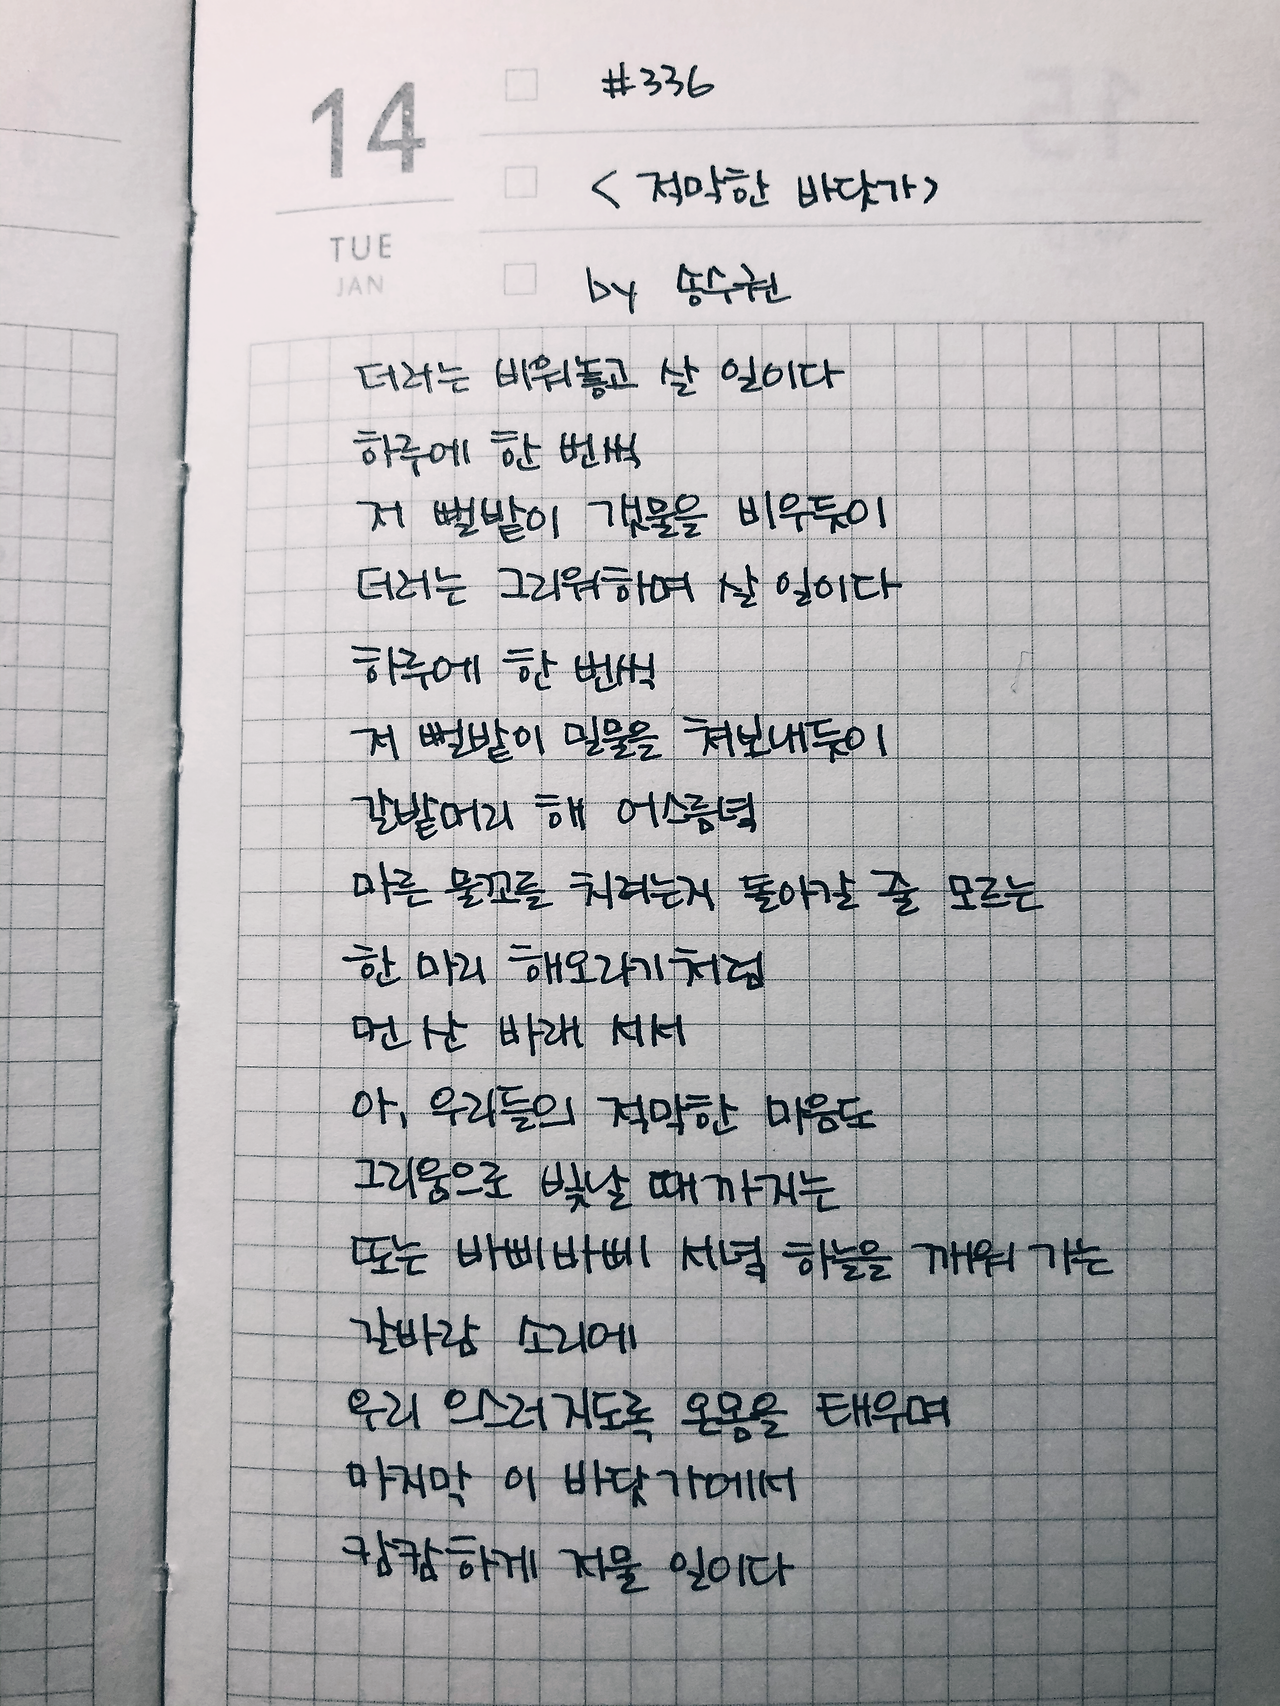 14
TUE
JAN
#336
<적막한 바닷가>
by 송수권
더러는 비워놓고 살 일이다
하루에 한 번씩
저 뻘밭이 갯물을 비우듯이
더러는 그리워하며 살 일이다
하루에 한 번씩
저 뻘밭이 밀물을 쳐보내듯이
갈밭머리 해 어스름녘
마른 물꼬를 치려는지 돌아갈 줄 모르는
한 마리 해오라기처럼
먼 산 바래 서서
아, 우리들의 적막한 마음도
그리움으로 빛날 때까지는
또는 바삐바삐 서녘 하늘을 깨워 가는
갈바람 소리에
우리 으스러지도록 온몸을 태우며
마지막 이 바닷가에서
캄캄하게 저물 일이다